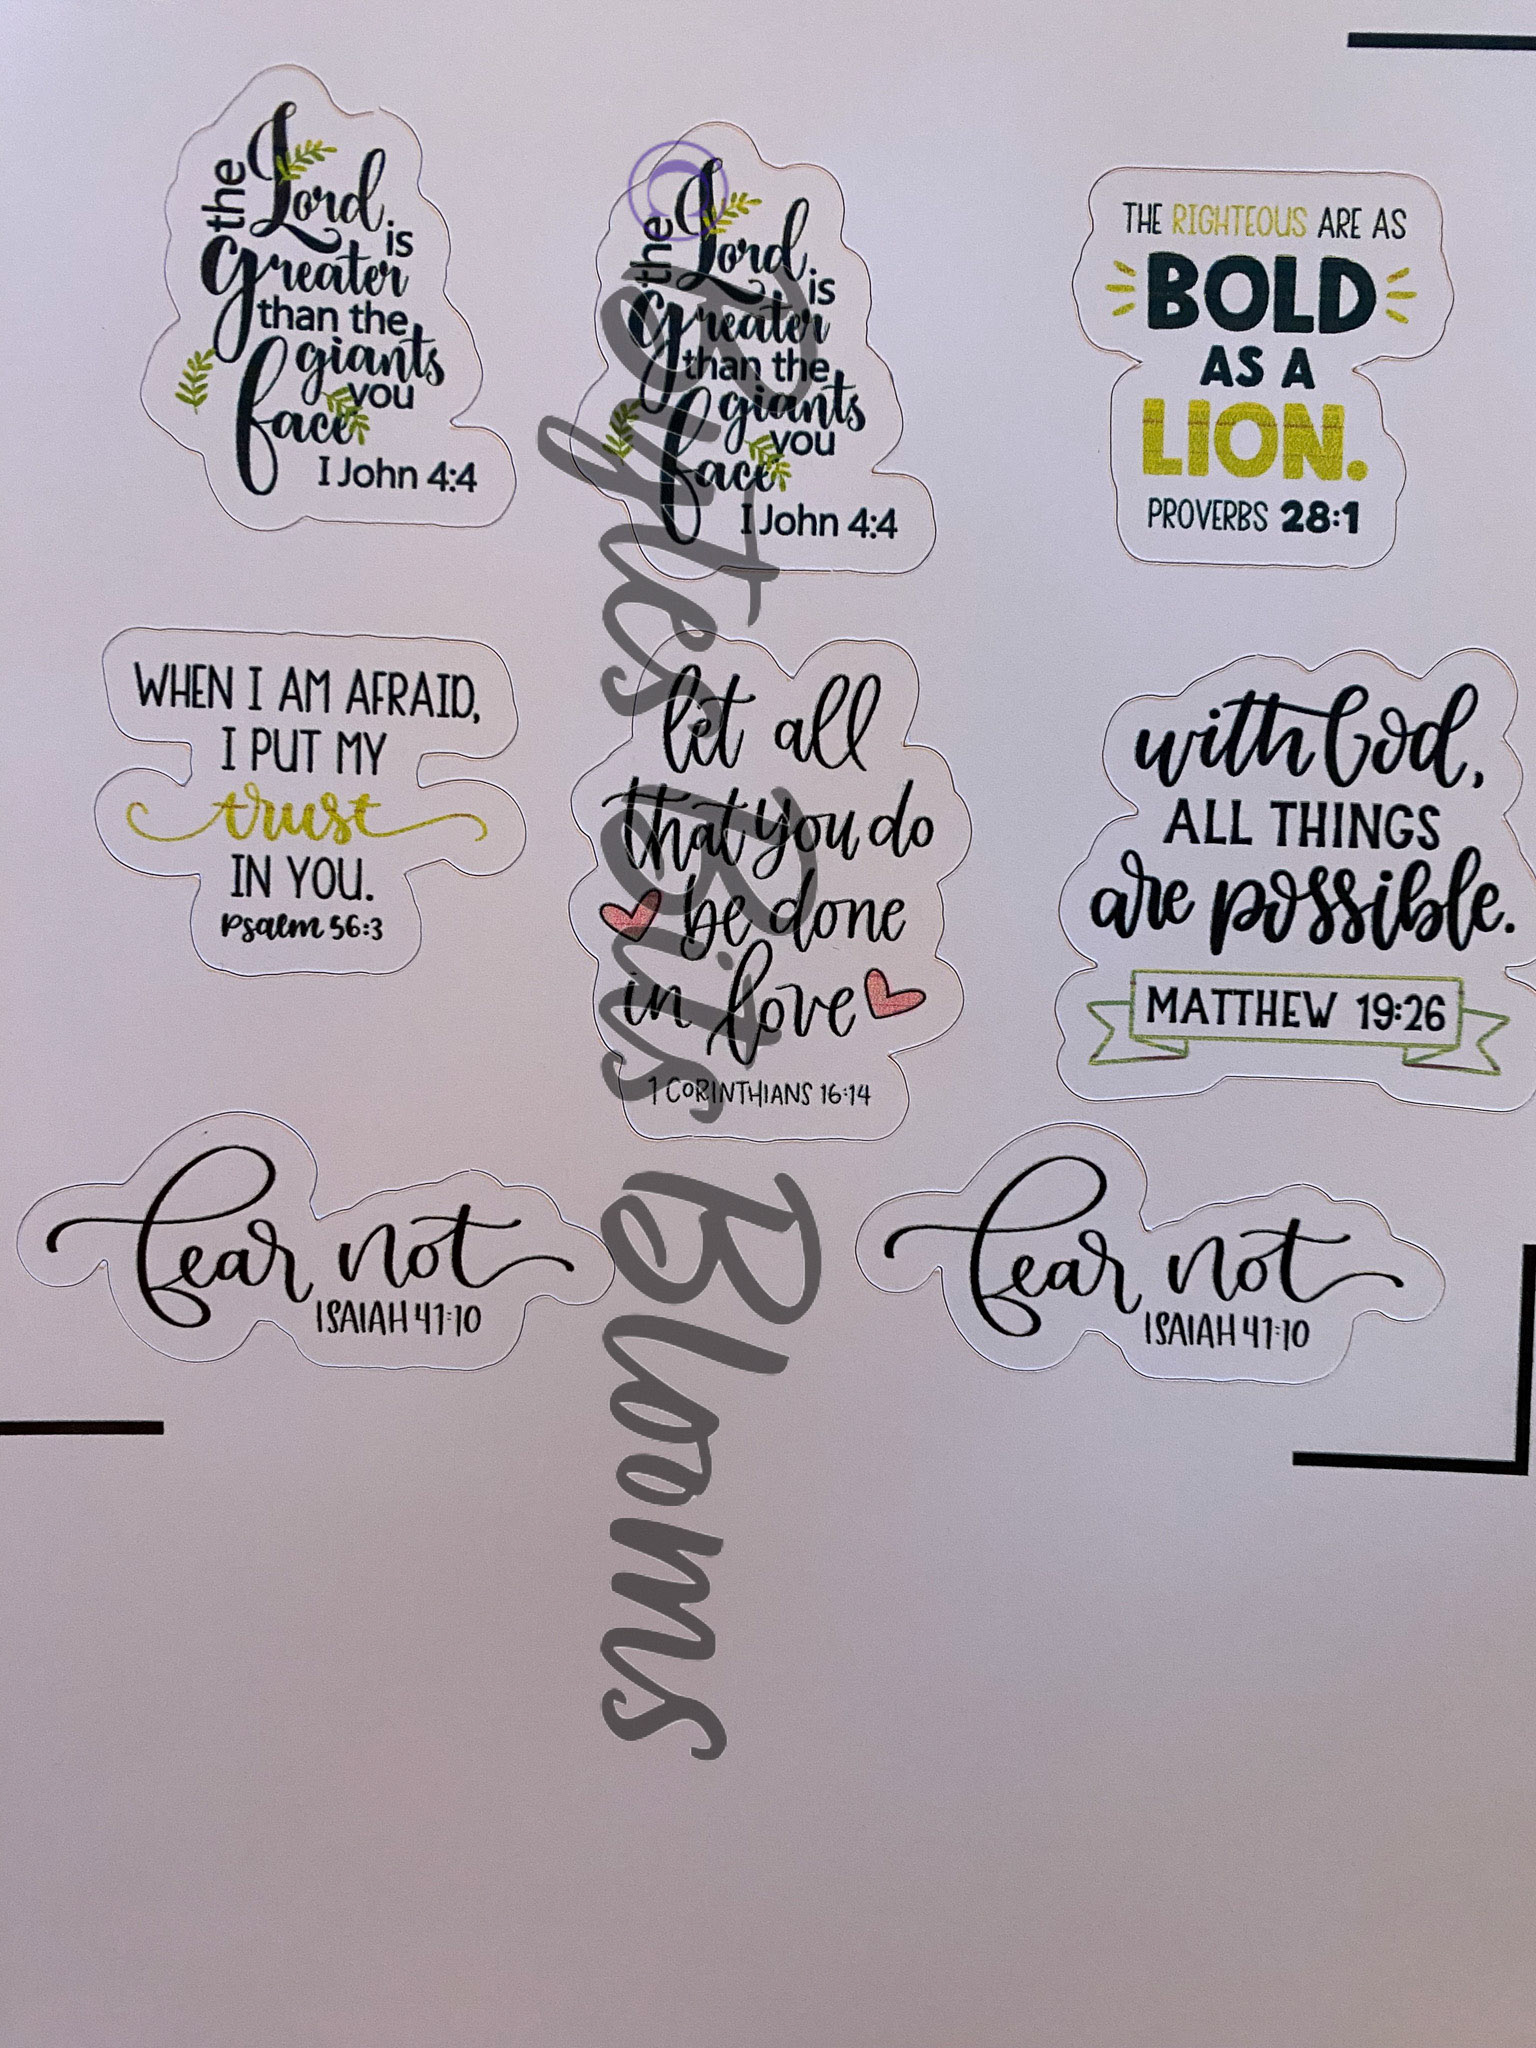 the Lord is
greater
than the
giants
you
face
I John 4:4
the Lord is
greater
than the
giants
you
face
I John 4:4
THE RIGHTEOUS ARE AS
BOLD
AS A
LION.
PROVERBS 28:1
WHEN I AM AFRAID,
I PUT MY
trust
IN YOU.
Psalm 56:3
let all
that you do
be done
in love
1 CORINTHIANS 16:14
with God,
ALL THINGS
are possible.
MATTHEW 19:26
fear not
ISAIAH 41:10
fear not
ISAIAH 41:10
© Rhytes Bits Blooms